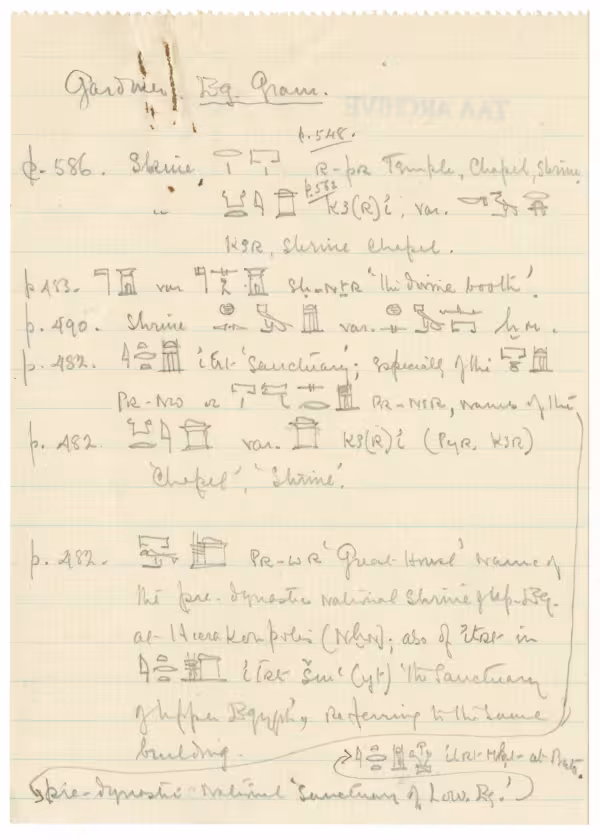 Gardiner. Eg. Gram.
p. 548.
p. 586. Shrine R-pr Temple, Chapel, Shrine
p. 562
" K3(R)i, var.
K3R, Shrine Chapel.
p. 483. var Sh-NTR 'the divine booth'.
p. 490. Shrine var. ḫM.
p. 482. iTRT 'Sanctuary'; Especially of the
PR-NW or PR-NSR, names of the
p. 482 var. K3(R)i (Pyr. K3R)
'Chapel', 'Shrine'.
p. 482. PR-WR 'Great House' Name of
the pre-dynastic national Shrine of Upp. Eg.
at Hierakonpolis (Nḫn); also of itrt in
iTRT Šm'(yt) 'the Sanctuary
of Upper Egypt', Referring to the same
building.
iTRT-Mḥt- at Buto.
pre-dynastic National 'Sanctuary of Low. Eg.'